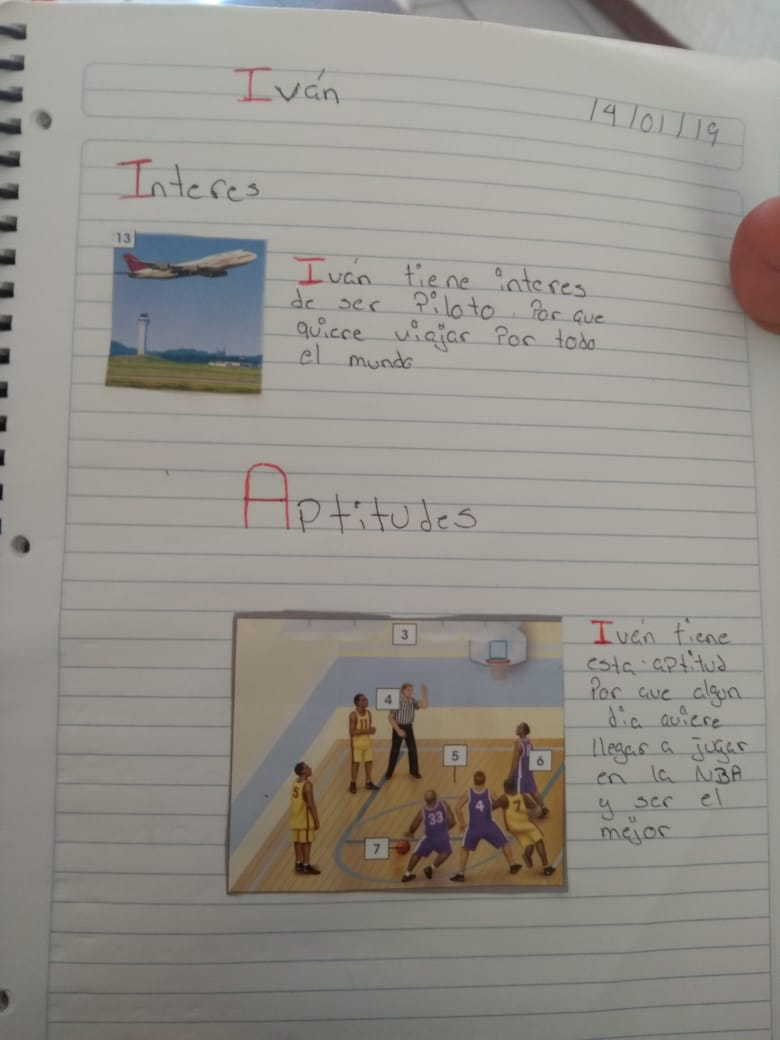 Iván
14/01/19
Interes
13
Iván tiene interes
de ser Piloto. Por que
quiere viajar Por todo
el mundo
Aptitudes
3
4
5
6
7
11
5
33
4
7
Iván tiene
esta aptitud
Por que algun
dia quiere
llegar a jugar
en la NBA
y ser el
mejor